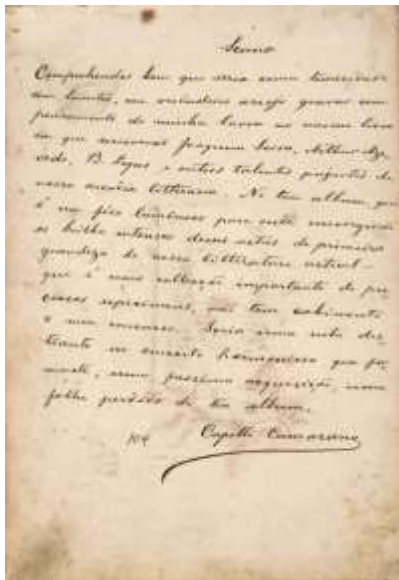 Comprehendes bem que seria uma temeridade
sem limites, um verdadeiro arrojo gravar um
pensamento de minha lavra no mesmo livro
em que Joaquim Serra, Arthur Aze-
vedo, B. Lopes e outros talentos pujantes de
nosso litterario. No teu album, que
é um foco luminoso para onde convergem
os brilhos intensos desses astros de primeira
grandeza da nossa litteratura actual -
que é uma collecção importante de pre-
ciosos especimens, não tem cabimento
o meu concurso. Seria uma nota des-
toante no concerto harmonioso que for-
maste, uma pessima acquisição, uma
folha perdida de teu album.